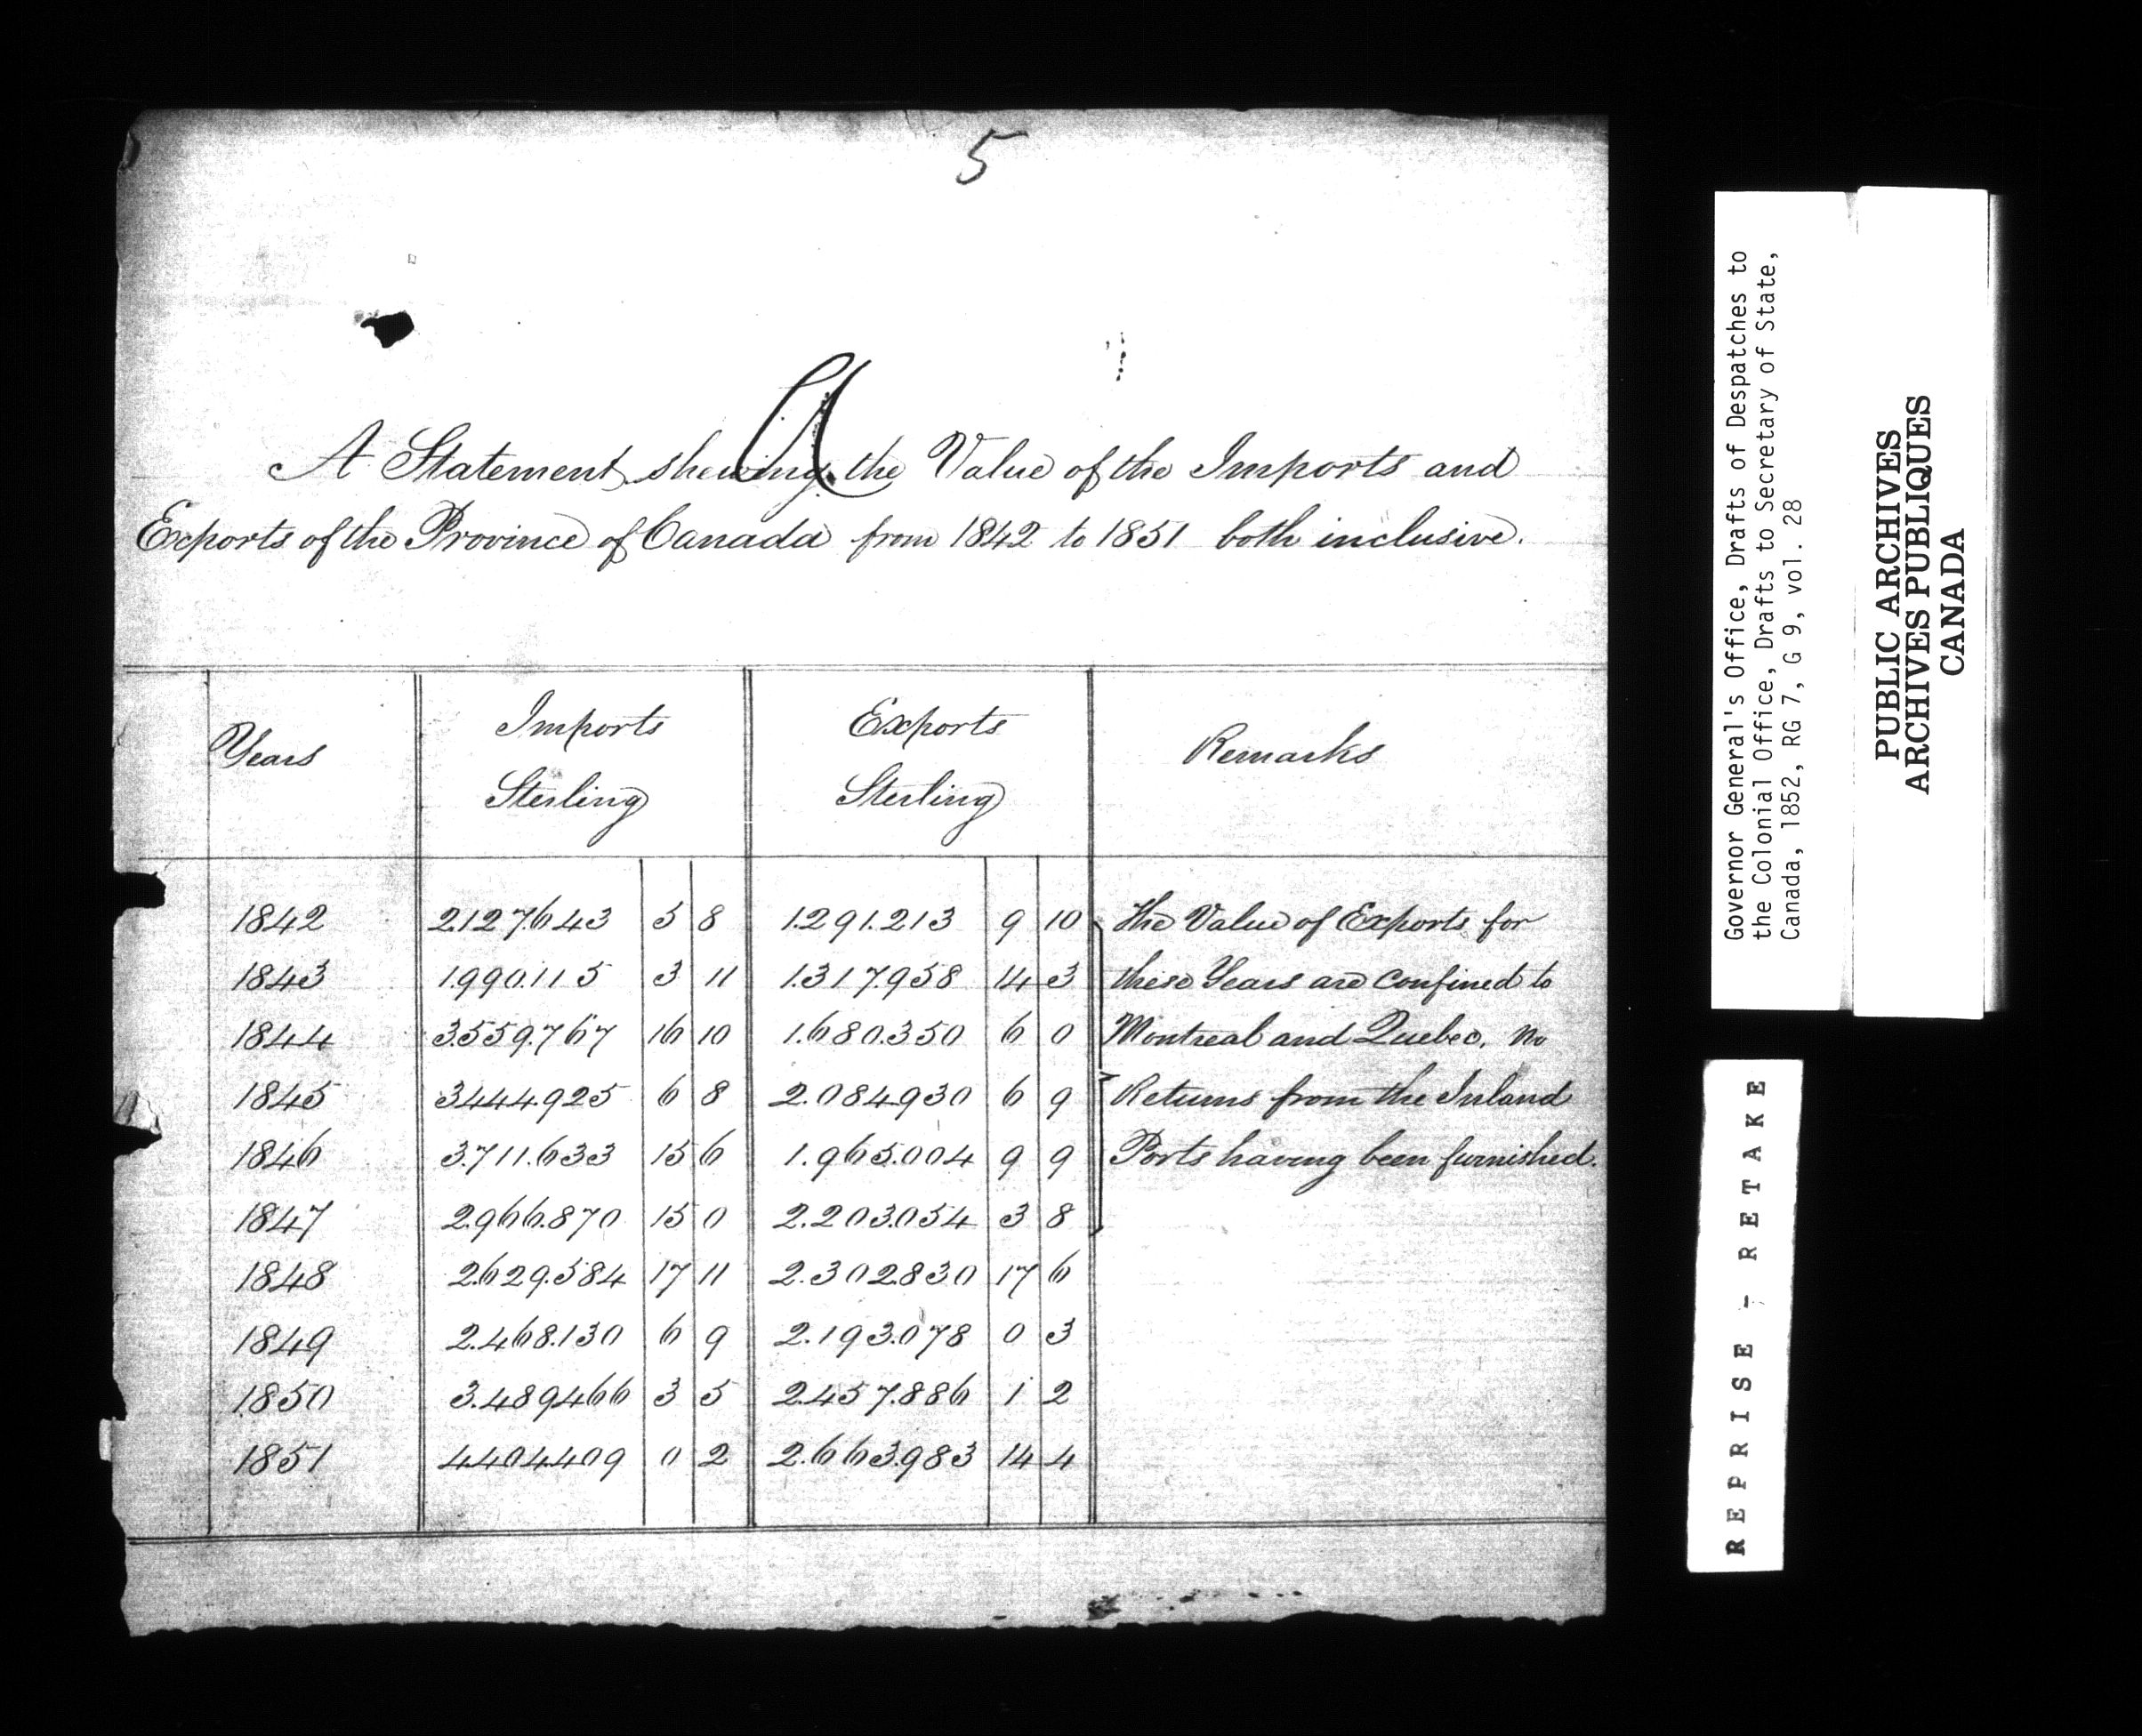 5
A
A Statement shewing the Value of the Imports and
Exports of the Province of Canada from 1842 to 1851 both inclusive.
Years | Imports Sterling | Exports Sterling | Remarks
1842 | 2.127.643 | 5 | 8 | 1.291.213 | 9 | 10 | The Value of Exports for
1843 | 1.990.115 | 3 | 11 | 1.317.958 | 14 | 3 | these Years are confined to
1844 | 3.559.767 | 16 | 10 | 1.680.350 | 6 | 0 | Montreal and Quebec. No
1845 | 3444.925 | 6 | 8 | 2.084930 | 6 | 9 | Returns from the Inland
1846 | 3.711.633 | 15 | 6 | 1.965.004 | 9 | 9 | Ports having been furnished.
1847 | 2.966.870 | 15 | 0 | 2.203.054 | 3 | 8
1848 | 2.629.584 | 17 | 11 | 2.302.830 | 17 | 6
1849 | 2.468.130 | 6 | 9 | 2.193.078 | 0 | 3
1850 | 3.489466 | 3 | 5 | 2.457.886 | 1 | 2
1851 | 4404409 | 0 | 2 | 2.663.983 | 14 | 4
Governor General's Office, Drafts of Despatches to
the Colonial Office, Drafts to Secretary of State,
Canada, 1852, RG 7, G 9, vol. 28
PUBLIC ARCHIVES
ARCHIVES PUBLIQUES
CANADA
REPRISE - RETAKE